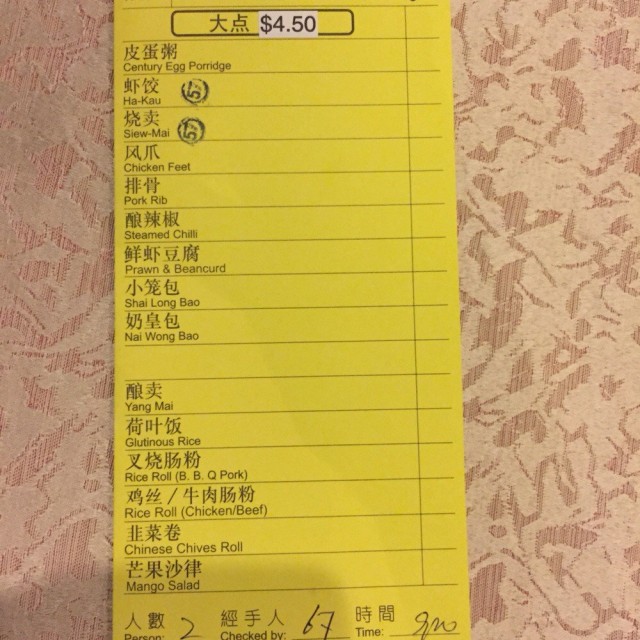 大点 $4.50
皮蛋粥
Century Egg Porridge
虾饺
Ha-Kau
烧卖
Siew-Mai
风爪
Chicken Feet
排骨
Pork Rib
酿辣椒
Steamed Chilli
鲜虾豆腐
Prawn & Beancurd
小笼包
Shai Long Bao
奶皇包
Nai Wong Bao
酿卖
Yang Mai
荷叶饭
Glutinous Rice
叉烧肠粉
Rice Roll (B. B. Q Pork)
鸡丝/牛肉肠粉
Rice Roll (Chicken/Beef)
韭菜卷
Chinese Chives Roll
芒果沙律
Mango Salad
人數 2 經手人 67 時間
Person: Checked by: Time: